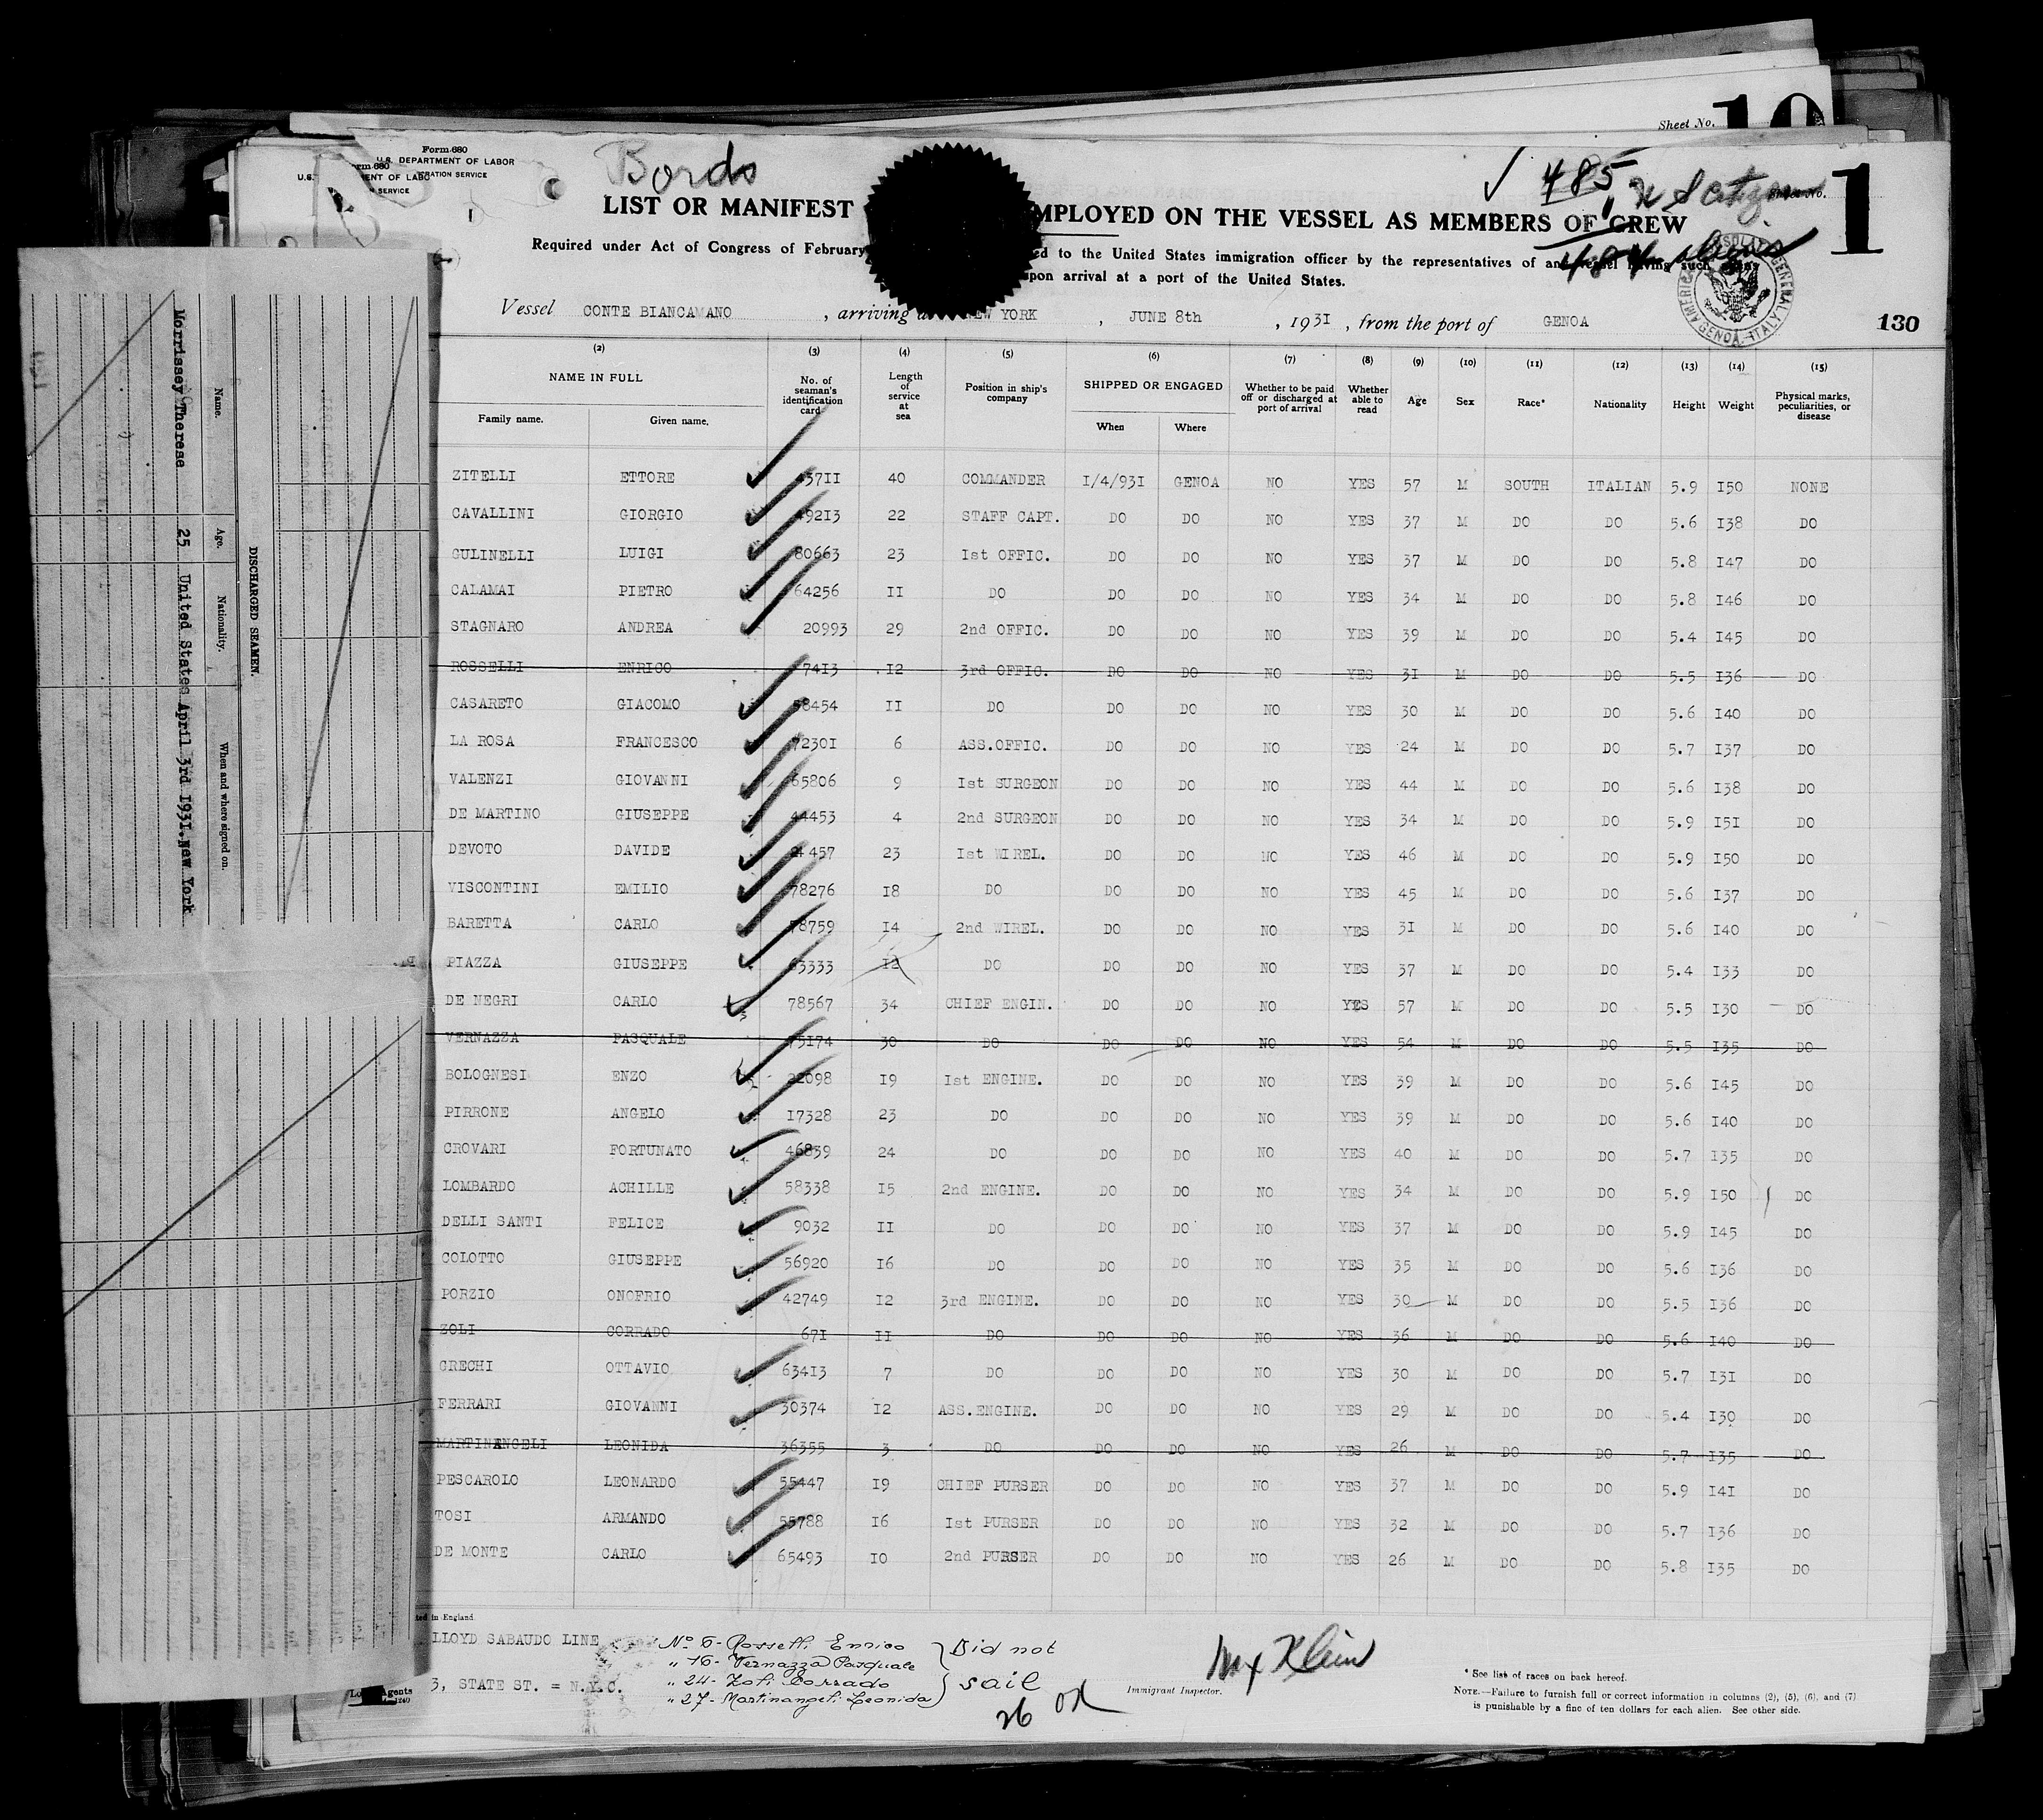 Sheet No. 10
Form 680
U.S. DEPARTMENT OF LABOR
Bords
✓ 485
1
LIST OR MANIFEST MPLOYED ON THE VESSEL AS MEMBERS OF CREW
Required under Act of Congress of February ed to the United States immigration officer by the representatives of any vessel having such
upon arrival at a port of the United States.
Vessel CONTE BIANCAMANO , arriving a NEW YORK , JUNE 8th , 1931 , from the port of GENOA
130
(2) (3) (4) (5) (6) (7) (8) (9) (10) (11) (12) (13) (14) (15)
NAME IN FULL No. of seaman's identification card Length of service at sea Position in ship's company SHIPPED OR ENGAGED Whether to be paid off or discharged at port of arrival Whether able to read Age Sex Race* Nationality Height Weight Physical marks, peculiarities, or disease
Family name. Given name. When Where
ZITELLI ETTORE 45711 40 COMMANDER 1/4/931 GENOA NO YES 57 M SOUTH ITALIAN 5.9 150 NONE
CAVALLINI GIORGIO 49213 22 STAFF CAPT. DO DO NO YES 37 M DO DO 5.6 138 DO
GULINELLI LUIGI 80663 23 1st OFFIC. DO DO NO YES 37 M DO DO 5.8 147 DO
CALAMAI PIETRO 64256 11 DO DO DO NO YES 34 M DO DO 5.8 146 DO
STAGNARO ANDREA 20993 29 2nd OFFIC. DO DO NO YES 39 M DO DO 5.4 145 DO
ROSSELLI ENRICO 7413 12 3rd OFFIC. DO DO NO YES 31 M DO DO 5.5 136 DO
CASARETO GIACOMO 58454 11 DO DO DO NO YES 30 M DO DO 5.6 140 DO
LA ROSA FRANCESCO 72301 6 ASS.OFFIC. DO DO NO YES 24 M DO DO 5.7 137 DO
VALENZI GIOVANNI 65806 9 1st SURGEON DO DO NO YES 44 M DO DO 5.6 138 DO
DE MARTINO GIUSEPPE 44453 4 2nd SURGEON DO DO NO YES 34 M DO DO 5.9 151 DO
DEVOTO DAVIDE 457 23 1st WIREL. DO DO NO YES 46 M DO DO 5.9 150 DO
VISCONTINI EMILIO 78276 18 DO DO DO NO YES 45 M DO DO 5.6 137 DO
BARETTA CARLO 78759 14 2nd WIREL. DO DO NO YES 31 M DO DO 5.6 140 DO
PIAZZA GIUSEPPE 63333 12 DO DO DO NO YES 37 M DO DO 5.4 133 DO
DE NEGRI CARLO 78567 34 CHIEF ENGIN. DO DO NO YES 57 M DO DO 5.5 130 DO
VERNAZZA PASQUALE 75174 30 DO DO DO NO YES 54 M DO DO 5.5 135 DO
BOLOGNESI ENZO 22098 19 1st ENGINE. DO DO NO YES 39 M DO DO 5.6 145 DO
PIRRONE ANGELO 17328 23 DO DO DO NO YES 39 M DO DO 5.6 140 DO
CROVARI FORTUNATO 46839 24 DO DO DO NO YES 40 M DO DO 5.7 135 DO
LOMBARDO ACHILLE 58338 15 2nd ENGINE. DO DO NO YES 34 M DO DO 5.9 150 DO
DELLI SANTI FELICE 9032 11 DO DO DO NO YES 37 M DO DO 5.9 145 DO
COLOTTO GIUSEPPE 56920 16 DO DO DO NO YES 35 M DO DO 5.6 136 DO
PORZIO ONOFRIO 42749 12 3rd ENGINE. DO DO NO YES 30 M DO DO 5.5 136 DO
ZOLI CORRADO 671 11 DO DO DO NO YES 36 M DO DO 5.6 140 DO
GRECHI OTTAVIO 63413 7 DO DO DO NO YES 30 M DO DO 5.7 131 DO
FERRARI GIOVANNI 30374 12 ASS.ENGINE. DO DO NO YES 29 M DO DO 5.4 130 DO
MARTINANGELI LEONIDA 36355 3 DO DO DO NO YES 26 M DO DO 5.7 135 DO
PESCAROLO LEONARDO 55447 19 CHIEF PURSER DO DO NO YES 37 M DO DO 5.9 141 DO
TOSI ARMANDO 55788 16 1st PURSER DO DO NO YES 32 M DO DO 5.7 136 DO
DE MONTE CARLO 65493 10 2nd PURSER DO DO NO YES 26 M DO DO 5.8 135 DO
ted in England
LLOYD SABAUDO LINE
3, STATE ST. = N.Y.C.
Agents
No 6- Rosselli Enrico
" 16- Vernazza Pasquale
" 24- Zoli Corrado
" 27- Martinangeli Leonida
Did not
sail
26 OK
Max Klein
Immigrant Inspector.
* See list of races on back hereof.
NOTE.—Failure to furnish full or correct information in columns (2), (5), (6), and (7)
is punishable by a fine of ten dollars for each alien. See other side.
DISCHARGED SEAMEN.
Name. Age. Nationality. When and where signed on.
Morrissey Therese 25 United States April 3rd 1931. New York
AMERICAN CONSULATE GENERAL GENOA - ITALY